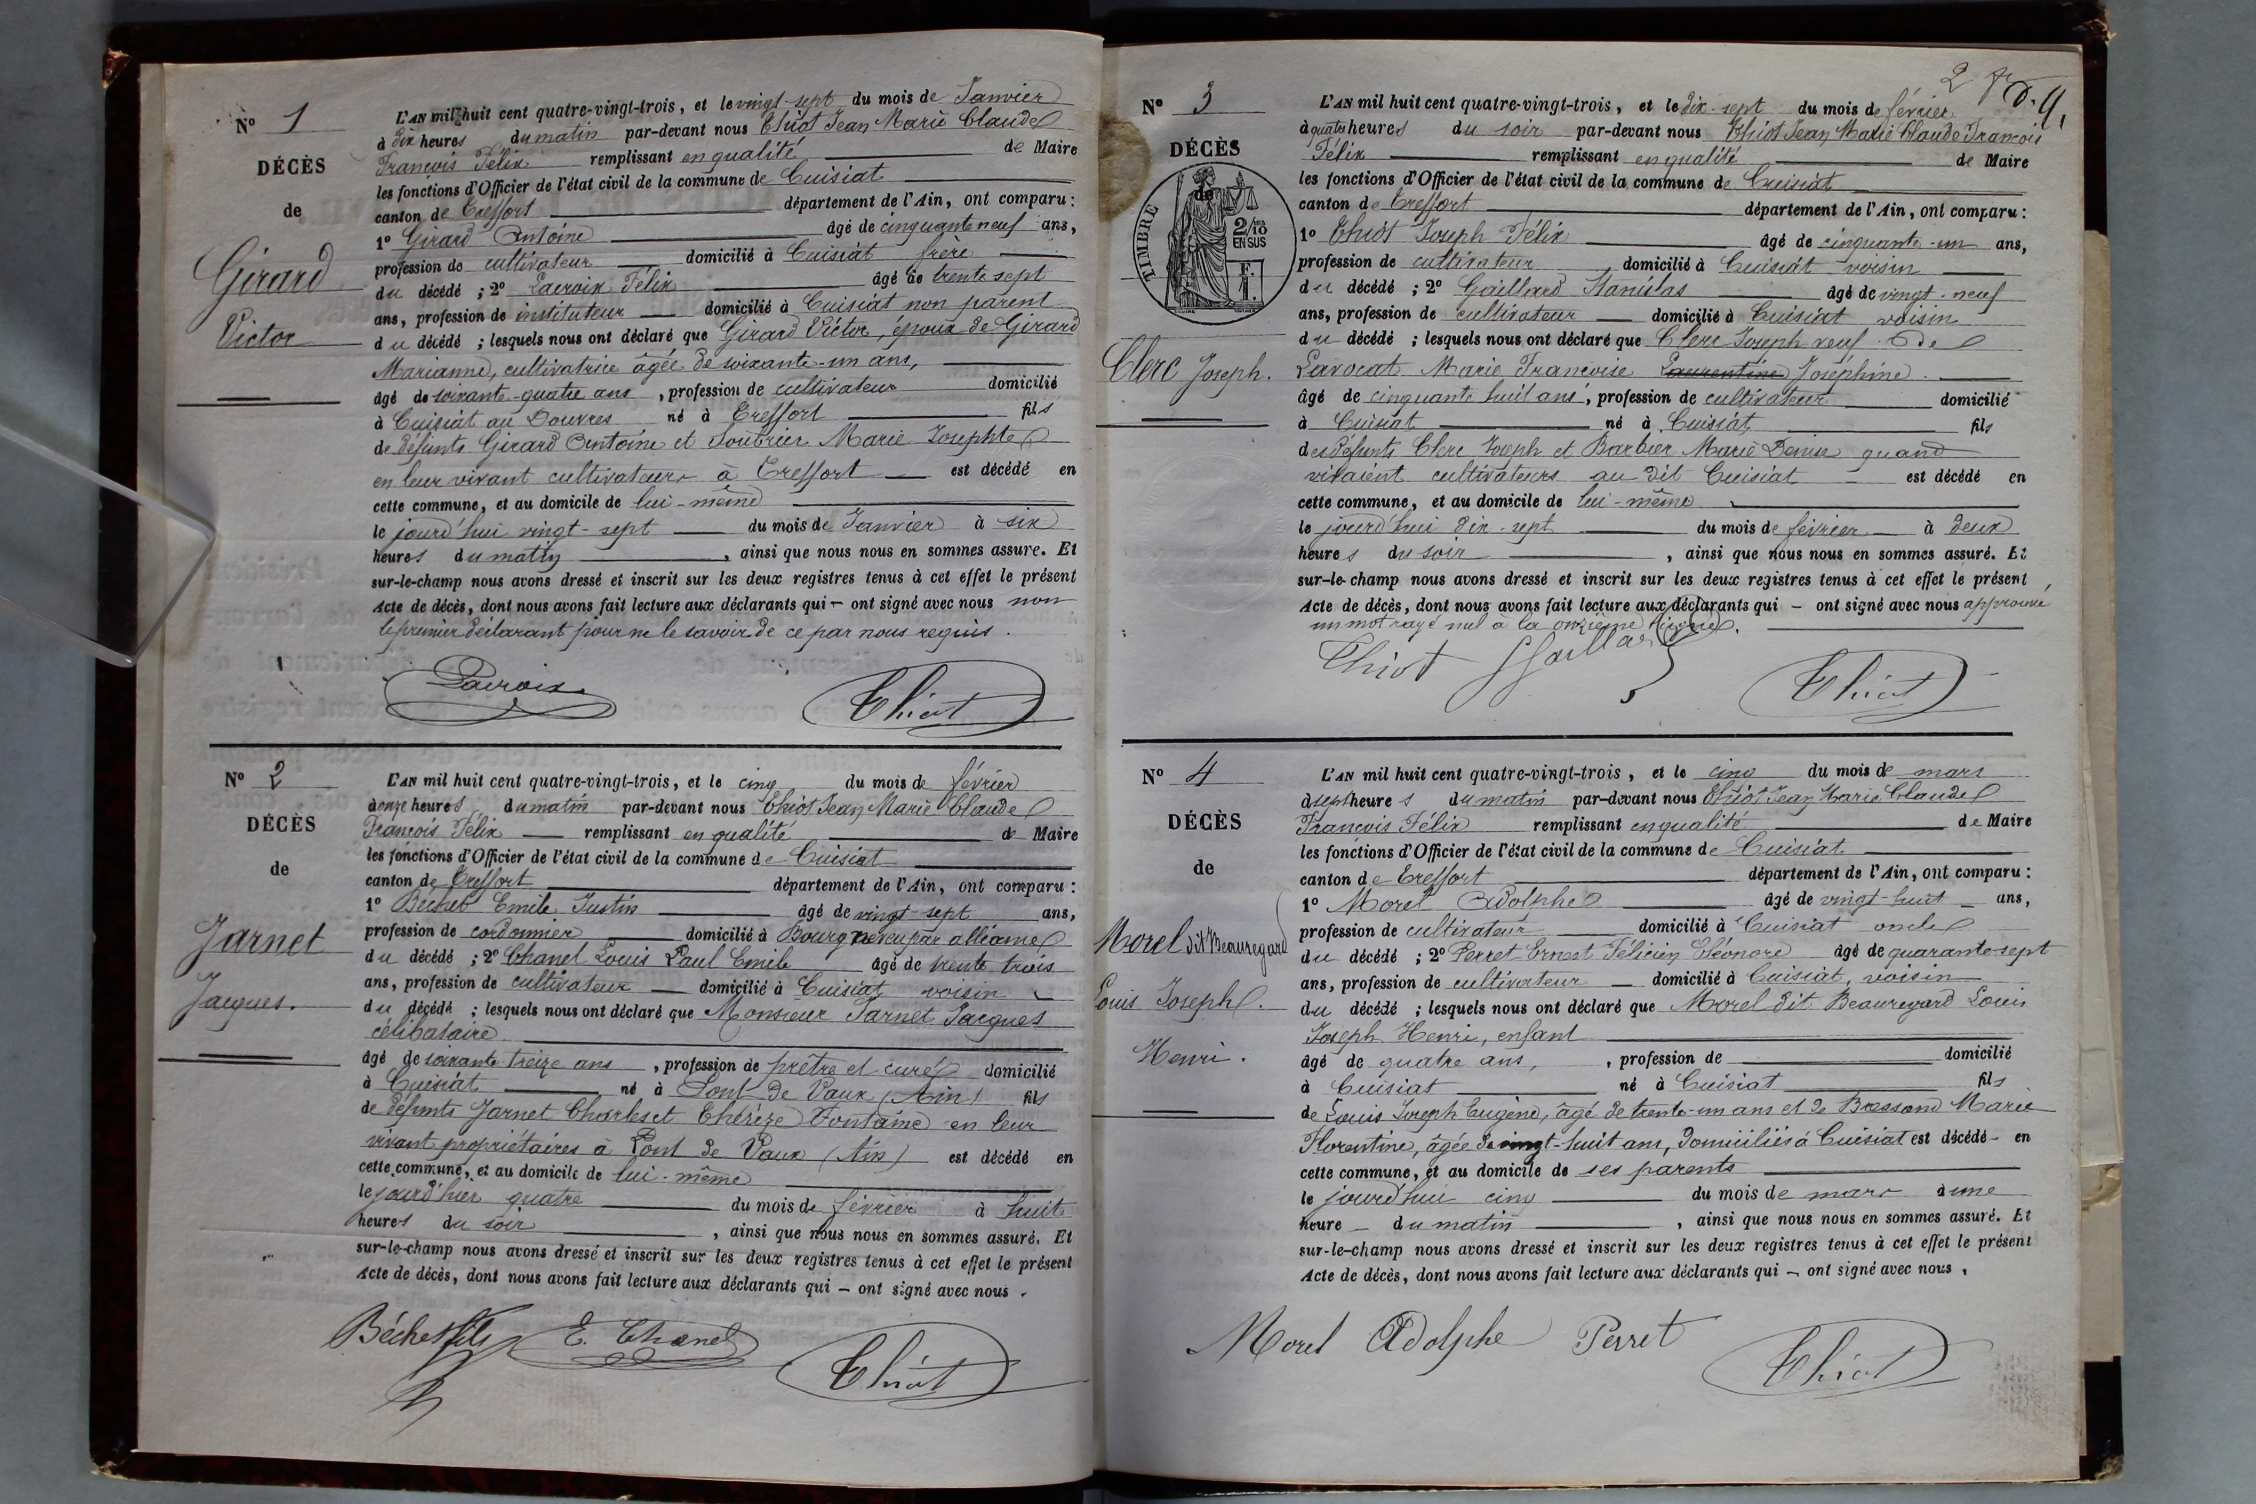 N° 1
DÉCÈS
de
Girard
Victor
L'AN mil huit cent quatre-vingt-trois, et le vingt-sept du mois de Janvier
à dix heures du matin par-devant nous Thiot Jean Marie Claude
François Félix remplissant en qualité de Maire
les fonctions d'Officier de l'état civil de la commune de Cuisiat
canton de Treffort département de l'Ain, ont comparu :
1° Girard Antoine âgé de cinquante neuf ans,
profession de cultivateur domicilié à Cuisiat frère
du décédé ; 2° Lacroix Félix âgé de trente sept
ans, profession de instituteur domicilié à Cuisiat non parent
du décédé ; lesquels nous ont déclaré que Girard Victor, époux de Girard
Marianne, cultivatrice âgée de soixante-un ans,
âgé de soixante-quatre ans, profession de cultivateur domicilié
à Cuisiat au Douvres né à Treffort fils
de défunts Girard Antoine et Soubrier Marie Josephte
en leur vivant cultivateurs à Treffort est décédé en
cette commune, et au domicile de lui-même
le jourd'hui vingt-sept du mois de Janvier à six
heures du matin, ainsi que nous nous en sommes assuré. Et
sur-le-champ nous avons dressé et inscrit sur les deux registres tenus à cet effet le présent
Acte de décès, dont nous avons fait lecture aux déclarants qui - ont signé avec nous non
le premier déclarant pour ne le savoir de ce par nous requis.
Lacroix
Thiot
N° 2
DÉCÈS
de
Jarnet
Jacques.
L'AN mil huit cent quatre-vingt-trois, et le cinq du mois de février
à onze heures du matin par-devant nous Thiot Jean Marie Claude
François Félix remplissant en qualité de Maire
les fonctions d'Officier de l'état civil de la commune de Cuisiat
canton de Treffort département de l'Ain, ont comparu :
1° Béchet Emile Justin âgé de vingt-sept ans,
profession de cordonnier domicilié à Bourg neveu par alliance
du décédé ; 2° Chanel Louis Paul Emile âgé de trente trois
ans, profession de cultivateur domicilié à Cuisiat voisin
du décédé ; lesquels nous ont déclaré que Monsieur Jarnet Jacques
célibataire
âgé de soixante treize ans, profession de prêtre et curé domicilié
à Cuisiat né à Pont de Vaux (Ain) fils
de défunts Jarnet Charles et Thérèze Fontaine en leur
vivant propriétaires à Pont de Vaux (Ain) est décédé en
cette commune, et au domicile de lui-même
le jourd'hier quatre du mois de février à huit
heures du soir, ainsi que nous nous en sommes assuré. Et
sur-le-champ nous avons dressé et inscrit sur les deux registres tenus à cet effet le présent
Acte de décès, dont nous avons fait lecture aux déclarants qui - ont signé avec nous.
Béchet fils
E. Chanel
Thiot
2
N° 3
DÉCÈS
de
TIMBRE
2/10
EN SUS
Clerc Joseph.
L'AN mil huit cent quatre-vingt-trois, et le dix-sept du mois de février
à quatre heures du soir par-devant nous Thiot Jean Marie Claude François
Félix remplissant en qualité de Maire
les fonctions d'Officier de l'état civil de la commune de Cuisiat
canton de Treffort département de l'Ain, ont comparu :
1° Thiot Joseph Félix âgé de cinquante-un ans,
profession de cultivateur domicilié à Cuisiat voisin
du décédé ; 2° Gaillard Stanislas âgé de vingt-neuf
ans, profession de cultivateur domicilié à Cuisiat voisin
du décédé ; lesquels nous ont déclaré que Clerc Joseph veuf de
Lavocat Marie Françoise Laurentine Joséphine.
âgé de cinquante huit ans, profession de cultivateur domicilié
à Cuisiat né à Cuisiat fils
des défunts Clerc Joseph et Barbier Marie Denise quand
vivaient cultivateurs au dit Cuisiat est décédé en
cette commune, et au domicile de lui-même
le jourd'hui dix-sept du mois de février à deux
heures du soir, ainsi que nous nous en sommes assuré. Et
sur-le-champ nous avons dressé et inscrit sur les deux registres tenus à cet effet le présent
Acte de décès, dont nous avons fait lecture aux déclarants qui - ont signé avec nous approuvé
un mot rayé nul à la onzième ligne.
Thiot
Gaillard
Thiot
N° 4
DÉCÈS
de
Morel dit Beauregard
Louis Joseph.
Henri.
L'AN mil huit cent quatre-vingt-trois, et le cinq du mois de mars
à sept heures du matin par-devant nous Thiot Jean Marie Claude
François Félix remplissant en qualité de Maire
les fonctions d'Officier de l'état civil de la commune de Cuisiat
canton de Treffort département de l'Ain, ont comparu :
1° Morel Adolphe âgé de vingt-huit ans,
profession de cultivateur domicilié à Cuisiat oncle
du décédé ; 2° Perret Ernest Félicien Eléonore âgé de quarante-sept
ans, profession de cultivateur domicilié à Cuisiat, voisin
du décédé ; lesquels nous ont déclaré que Morel dit Beauregard Louis
Joseph Henri, enfant
âgé de quatre ans, profession de domicilié
à Cuisiat né à Cuisiat fils
de Louis Joseph Eugène, âgé de trente-un ans et de Bressand Marie
Florentine, âgée de vingt-huit ans, domiciliés à Cuisiat est décédé en
cette commune, et au domicile de ses parents
le jourd'hui cinq du mois de mars à une
heure du matin, ainsi que nous nous en sommes assuré. Et
sur-le-champ nous avons dressé et inscrit sur les deux registres tenus à cet effet le présent
Acte de décès, dont nous avons fait lecture aux déclarants qui - ont signé avec nous.
Morel Adolphe
Perret
Thiot